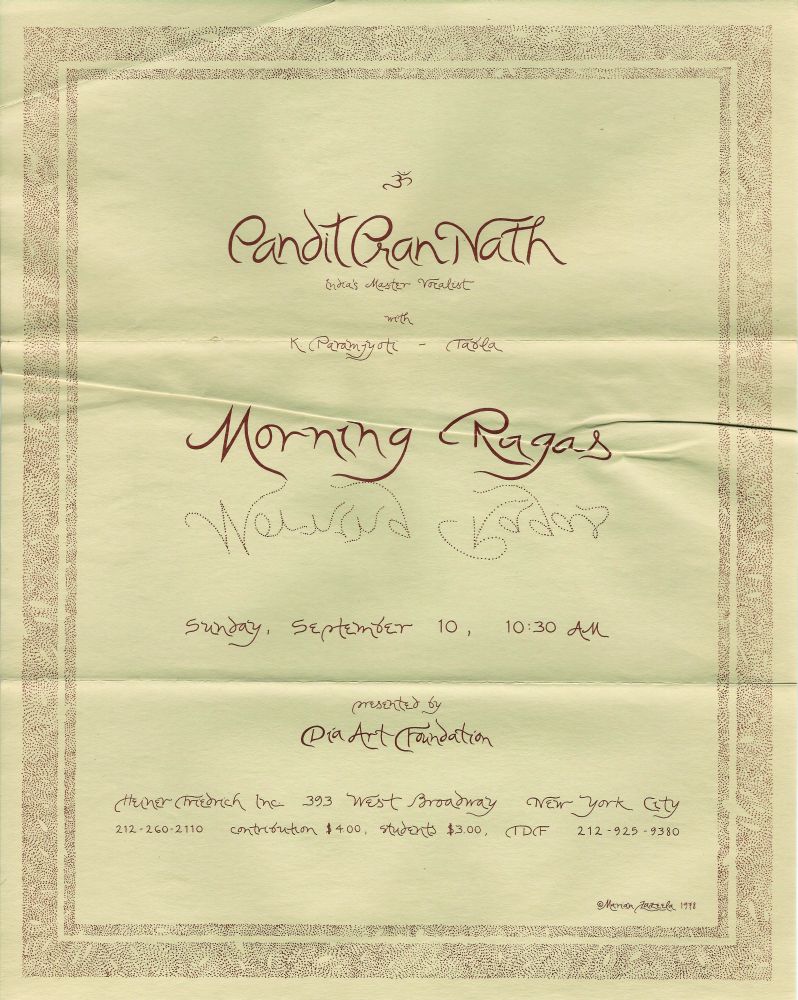 ॐ
Pandit Pran Nath
India's Master Vocalist
with
K Paramjyoti - Tabla
Morning Ragas
Sunday, September 10, 10:30 AM
presented by
Dia Art Foundation
Heiner Friedrich Inc 393 West Broadway New York City
212-260-2110 contribution $4.00, students $3.00, TDF 212-925-9380
©Marian Zazeela 1978